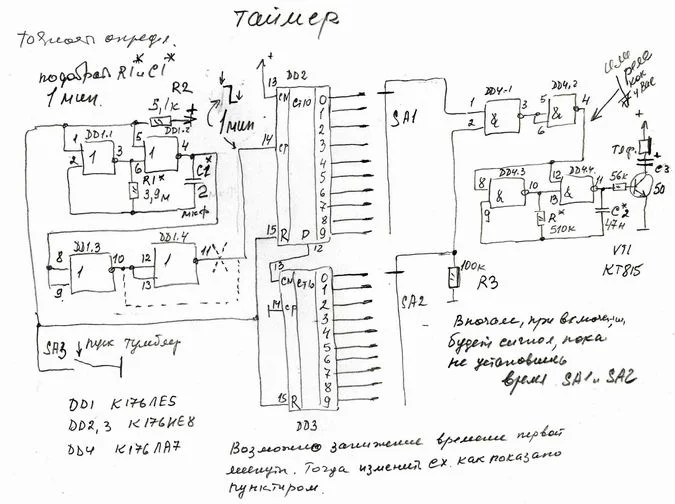 Таймер
точность определ.
подобрать R1* и C1*
1 мин.
R2
5,1к
1 мин
DD1.1
1
2
1
3
DD1.2
5
6
1
4
R1*
3,9м
C1*
2
мкф
DD1.3
8
9
1
10
DD1.4
12
13
1
11
SA3
пуск тумблер
DD2
13
CN
СТ10
14
CP
15
R
P
12
0
1
2
3
4
5
6
7
8
9
SA1
13
CN
14
CP
15
R
DD3
0
1
2
3
4
5
6
7
8
9
SA2
100к
R3
DD4.1
1
2
&
3
DD4.2
5
6
&
4
DD4.3
8
9
&
10
DD4.4
12
13
&
11
R*
510к
C*2
47н
56к
или
реле
как
у вас
Тлф.
C3
50
VT1
КТ815
Вначале, при включении,
будет сигнал, пока
не установишь
время SA1 и SA2
DD1 К176ЛЕ5
DD2,3 К176ИЕ8
DD4 К176ЛА7
Возможно занижение времени первой
минуты. Тогда изменить сх. как показано
пунктиром.